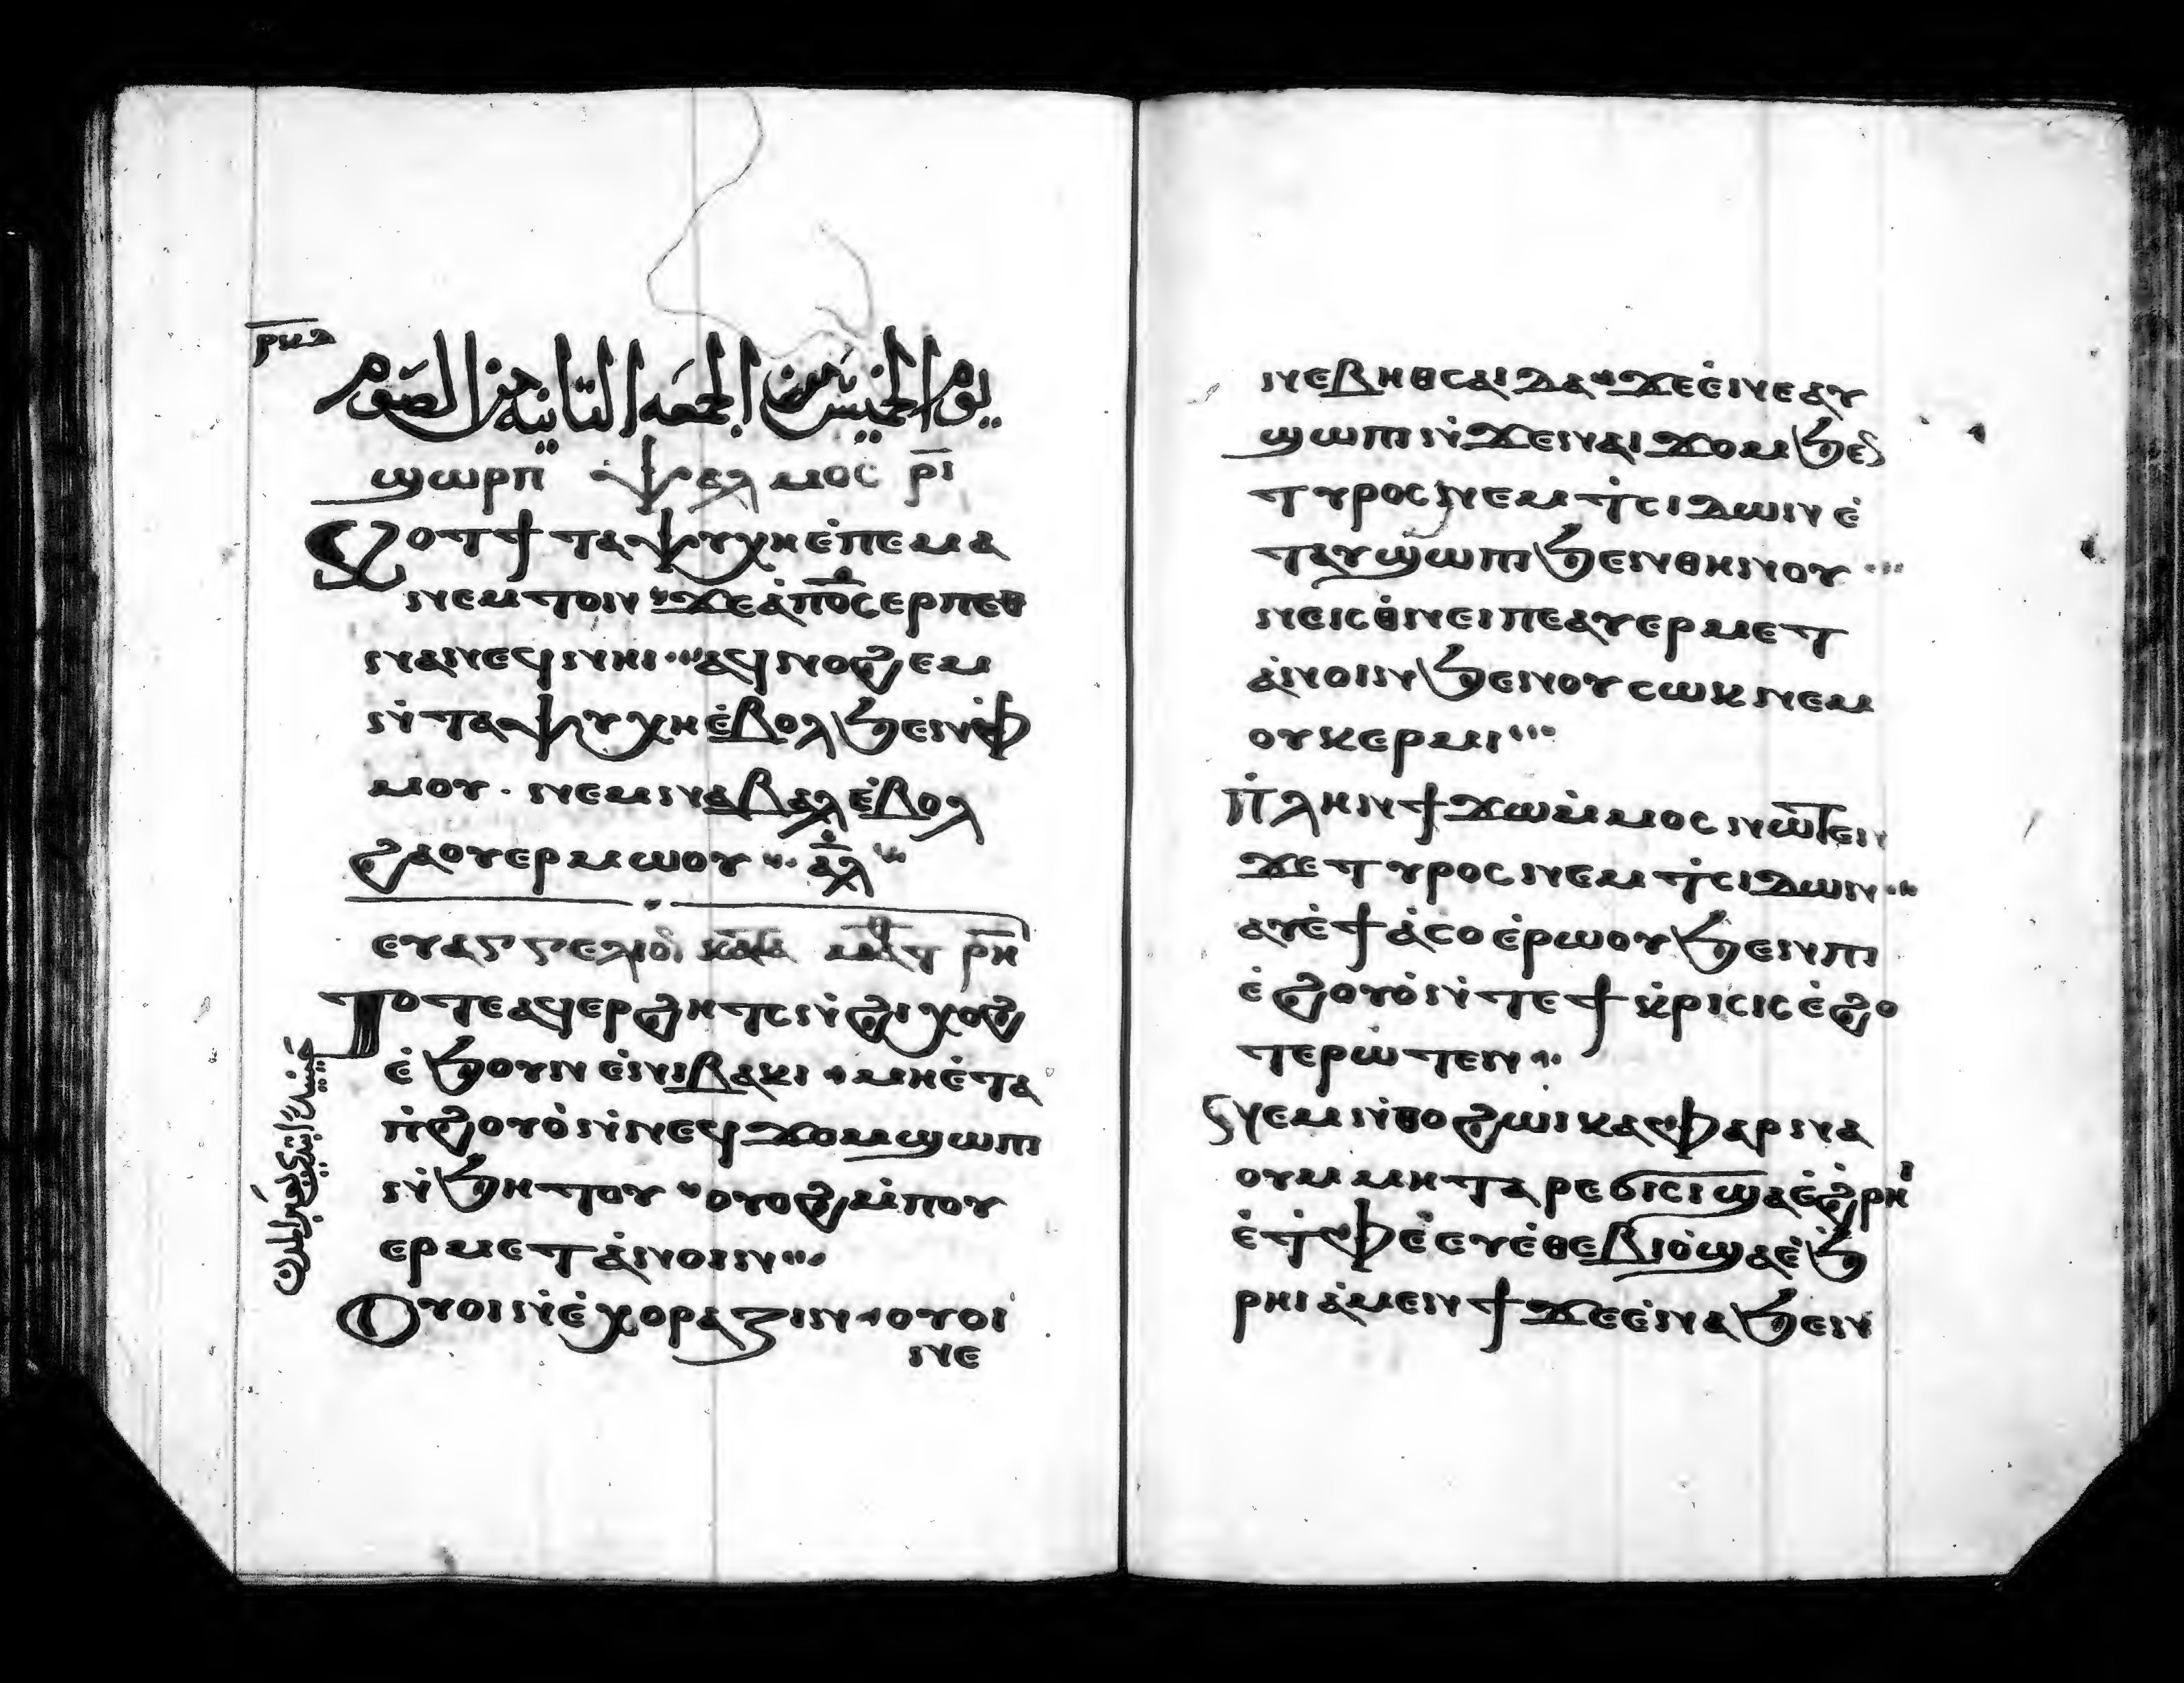 ⲣⲕⲋ
يوم الخميس من الجمعه التانيه من الصوم
ϣⲱⲣⲡ ⲯⲁⲗⲙⲟⲥ ⲣ̅ⲓ̅
Ⲕⲟⲧϯ ⲧⲁⲯⲩⲭⲏ ⲉ̀ⲡⲉⲙⲁ
ⲛⲉⲙⲧⲟⲛ ϫⲉ ⲁ̀ⲡⲟ̅ⲥ̅ ⲉⲣⲡⲉⲑ
ⲛⲁⲛⲉϥ ⲛⲏⲓ ⲁϥⲛⲟϩⲉⲙ
ⲛ̀ⲧⲁⲯⲩⲭⲏ ⲉ̀ⲃⲟⲗ ϧⲉⲛ ⲫ̀
ⲙⲟⲩ · ⲛⲉⲙ ⲛⲁⲃⲁⲗ ⲉ̀ⲃⲟⲗ
ϩⲁ ⲟⲩⲉⲣⲙⲱⲟⲩ ⲁ̅ⲗ̅
ⲉⲩⲁⲅⲅⲉⲗⲓⲟⲛ ⲕⲁⲧⲁ ⲙⲁⲧ ⲣ̅ⲏ̅
Ⲧⲟⲧⲉ ⲁϥⲉⲣϩⲏⲧⲥ ⲛ̀ϩⲓⲭⲟϩ
ⲉ̀ϧⲟⲩⲛ ⲉ̀ⲛⲓⲃⲁⲕⲓ · ⲙⲏⲉ̀ⲧⲁ
ⲡ̀ϩⲟⲩⲟ̀ ⲛ̀ⲛⲉϥϫⲟⲙ ϣⲱⲡⲓ
ⲛ̀ϧⲏⲧⲟⲩ ⲟⲩⲟϩ ⲙ̀ⲡⲟⲩ
ⲉⲣⲙⲉⲧⲁ̀ⲛⲟⲓⲛ
Ⲟⲩⲟⲓ ⲛⲉ̀ ⲭⲟⲣⲁⲍⲓⲛ · ⲟⲩⲟⲓ
ⲛⲉ
ⲛⲉ ⲃⲏⲑⲥⲁⲓⲇⲁ ϫⲉ ⲉ̀ⲛⲉ ⲁⲩ
ϣⲱⲡⲓ ⲛ̀ϫⲉ ⲛⲁⲓϫⲟⲙ ϧⲉⲛ
ⲧⲩⲣⲟⲥ ⲛⲉⲙ ⲧ̀ⲥⲓⲇⲱⲛ ⲉ̀
ⲧⲁⲩϣⲱⲡⲓ ϧⲉⲛ ⲑⲏⲛⲟⲩ
ⲛⲉ ⲓⲥϩ̀ⲛⲉⲓ ⲡⲉ ⲁⲩⲉⲣⲙⲉⲧ
ⲁ̀ⲛⲟⲓⲛ ϧⲉⲛ ⲟⲩⲥⲱⲕ ⲛⲉⲙ
ⲟⲩⲕⲉⲣⲙⲓ
Ⲡ̀ⲗⲏⲛ ϯϫⲱ ⲙ̀ⲙⲟⲥ ⲛⲱⲧⲉⲛ
ϫⲉ ⲧⲩⲣⲟⲥ ⲛⲉⲙ ⲧ̀ⲥⲓⲇⲱⲛ
ⲁⲩⲉ̀ϯⲁ̀ⲥⲟ ⲉ̀ⲣⲱⲟⲩ ϧⲉⲛ ⲡⲓ
ⲉ̀ϩⲟⲟⲩ ⲛ̀ⲧⲉ ϯⲕ̀ⲣⲓⲥⲓⲥ ⲉ̀ϩⲟ
ⲧⲉⲣⲱ̀ⲧⲉⲛ
Ⲛⲉⲙ ⲛ̀ⲑⲟ ϩⲱⲓ ⲕⲁⲫⲁⲣⲛⲁ
ⲟⲩⲙ ⲙⲏ ⲧⲁⲣⲉϭⲓⲥⲓ ϣⲁ ⲉ̀ϩ̀ⲣⲏⲓ
ⲉ̀ⲧ̀ⲫⲉ ⲉ̀ⲩⲉ̀ⲑⲉⲃⲓⲟ̀ ϣⲁ ⲉ̀ϧ
ⲣⲏⲓ ⲁ̀ⲙⲉⲛϯ ϫⲉ ⲉ̀ⲛⲁ ϧⲉⲛ